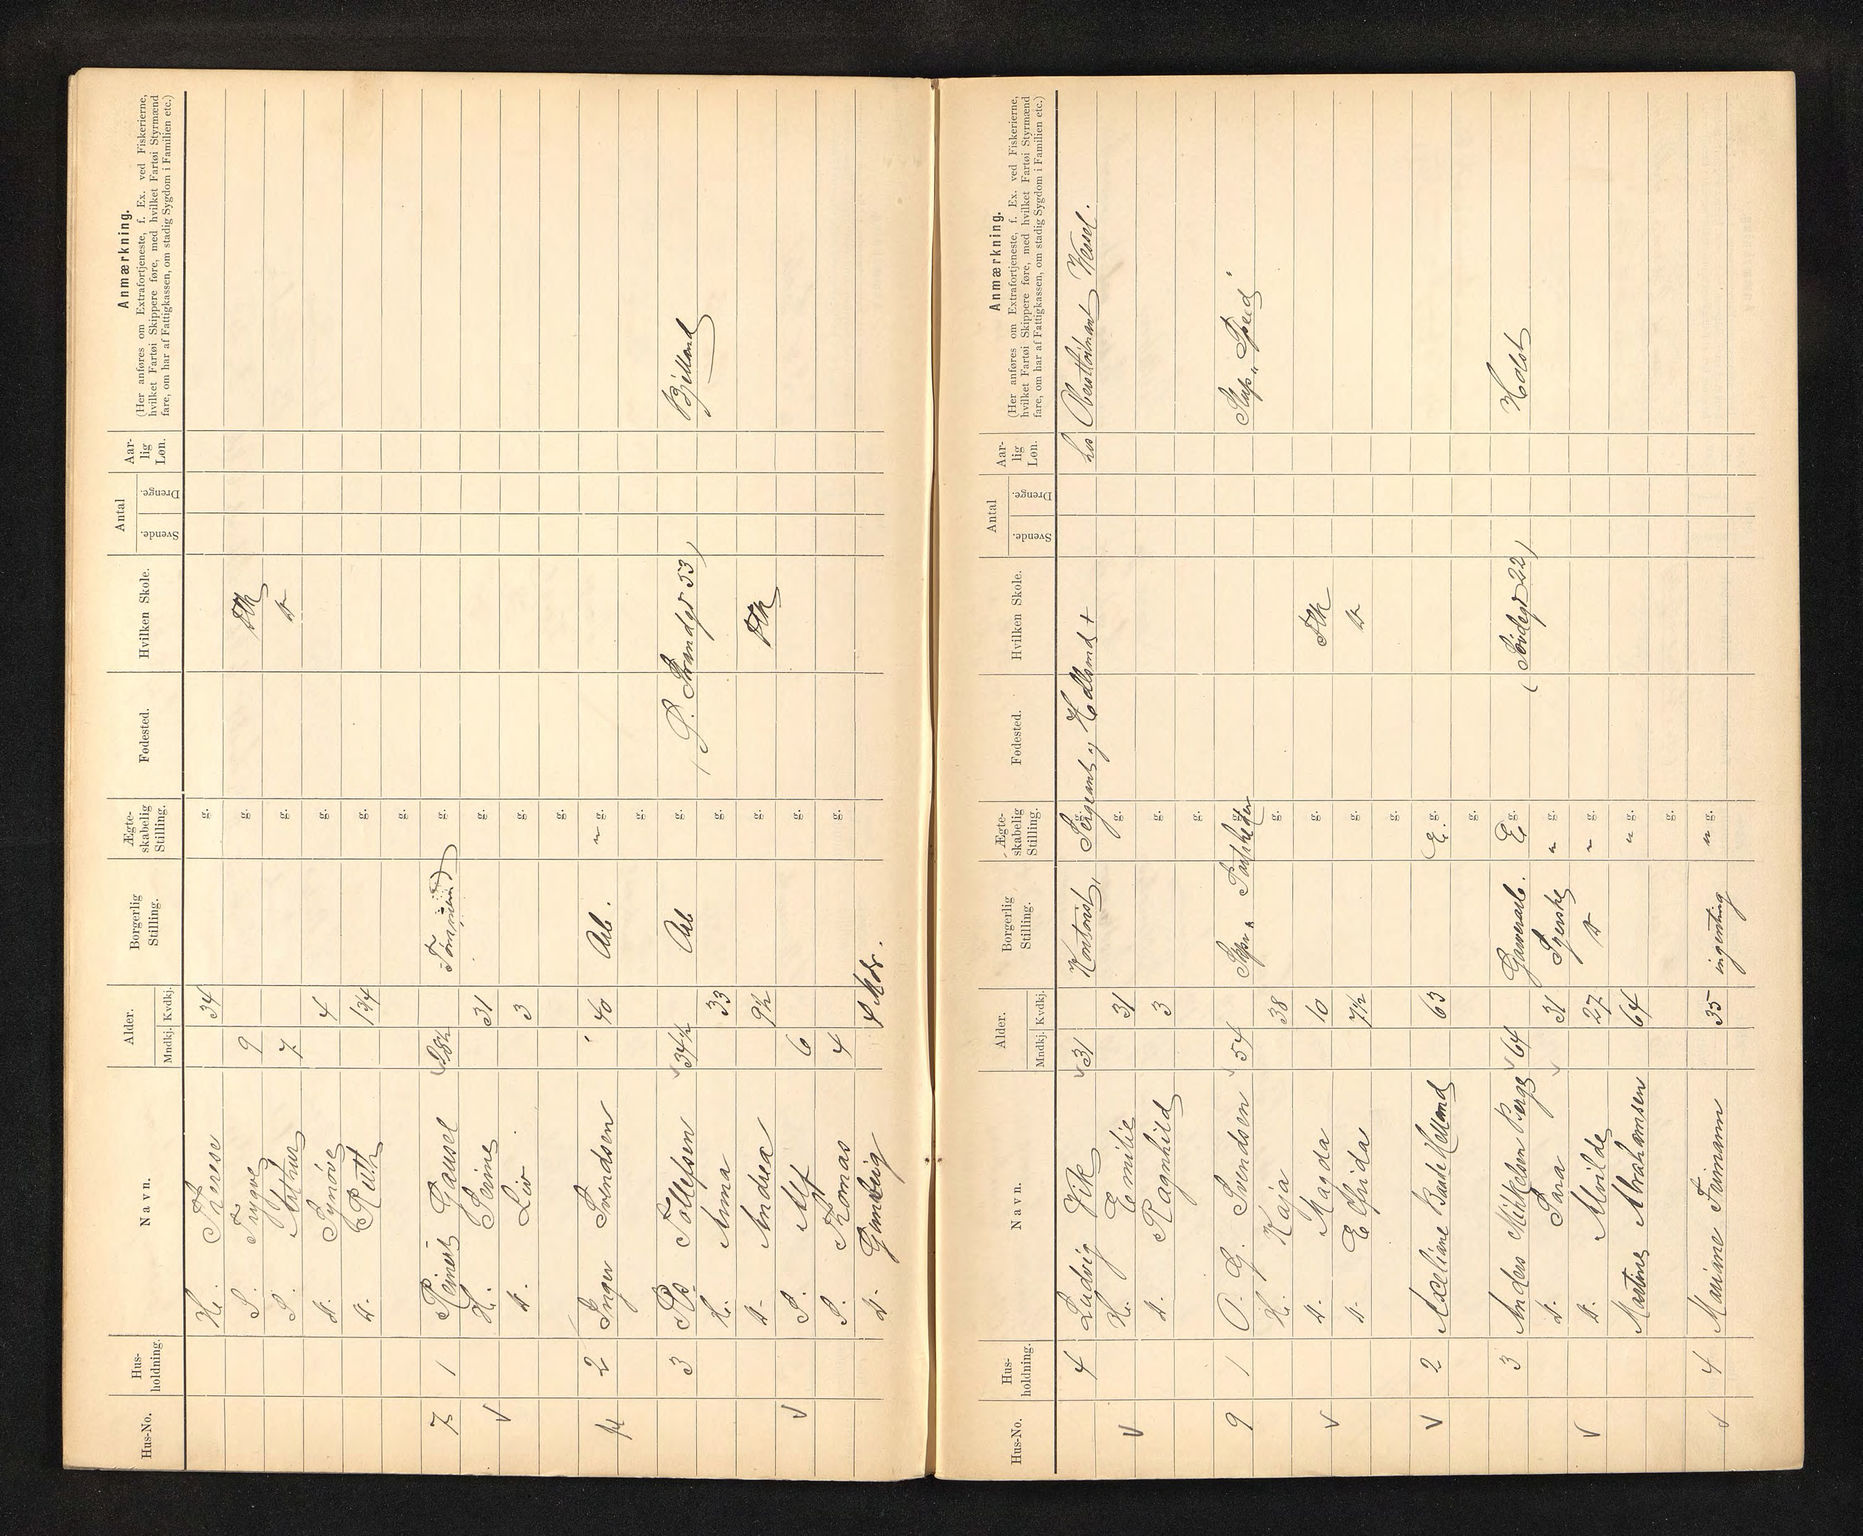 Hus-No. Hus-holdning. Navn. Alder. Mndkj. Kvdkj. Borgerlig Stilling. Ægte-skabelig Stilling. Fødested. Hvilken Skole. Antal Svende. Drenge. Aar-lig Løn. Anmærkning.
(Her anføres om Extrafortjeneste, f. Ex. ved Fiskerierne,
hvilket Fartøi Skippere føre, med hvilket Fartøi Styrmænd
fare, om har af Fattigkassen, om stadig Sygdom i Familien etc.)
H. Therese 34 g.
S. Trygve 9 g. Flk
S. Arthur 7 g. d
d. Synøve 4 g.
d. Ruth 1 3/4 g.
g.
7 1 Reinert Gausel 28½ Tømmermd g.
H. Seine 31 g.
d. Liv 3 g.
g.
2 Inger Svendsen 40 Arb. " g.
g.
3 Rs Tollefsen 34½ Arb g. (S. Strandgd 53) Bjelland
H. Anna 33 g.
d. Andrea 9½ g. Flk
S. Alf 6 g.
S. Thomas 4
d. Gundvig 9 Mdr.
Hus-No. Hus-holdning. Navn. Alder. Mndkj. Kvdkj. Borgerlig Stilling. Ægte-skabelig Stilling. Fødested. Hvilken Skole. Antal Svende. Drenge. Aar-lig Løn. Anmærkning.
(Her anføres om Extrafortjeneste, f. Ex. ved Fiskerierne,
hvilket Fartøi Skippere føre, med hvilket Fartøi Styrmænd
fare, om har af Fattigkassen, om stadig Sygdom i Familien etc.)
4 Ludvig Vik 31 Kontorist, Sergeant g. hos Oberstløitnant Wesel.
H. Emilie 31 g.
d. Ragnhild 3 g.
g.
9 1 O. G. Svendsen 54 Skpr " Partsreder g. Skip "Speed"
H. Kaja 38 g.
d. Magda 10 g. Flk
d. Elfrida 7½ g. d
g.
2 Axeliane Baade Helland 63 E. g.
g.
3 Anders Mikkelsen Berge 64 Gaverarb. E g. (Søvdegd 22) Holst
d. Sara 31 Syerske " g.
d. Alvilde 27 d " g.
Martine Abrahamsen 64 " g.
g.
4 Mariane Tuimann 35 ingenting " g.